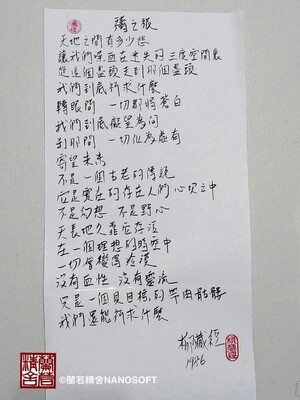 禱之旅
天地之間有多少愁
讓我們嘔血在迷失的三度空間裏
從這個盡頭走到那個盡頭
我們到底祈求什麼
轉眼間 一切都將蒼白
我們到底凝望為何
剎那間 一切化為虛有
寄望未來
不是一個古老的傳說
它是實在的存在人們心坎之中
不是幻想 不是野心
天長地久靠它存活
在一個理想的時空中
一切會變得冷漠
沒有血性 沒有靈流
只是一個具目標的
我們還能祈求什麼
柳藏經
1986
©蘭若精舍NANOSOFT